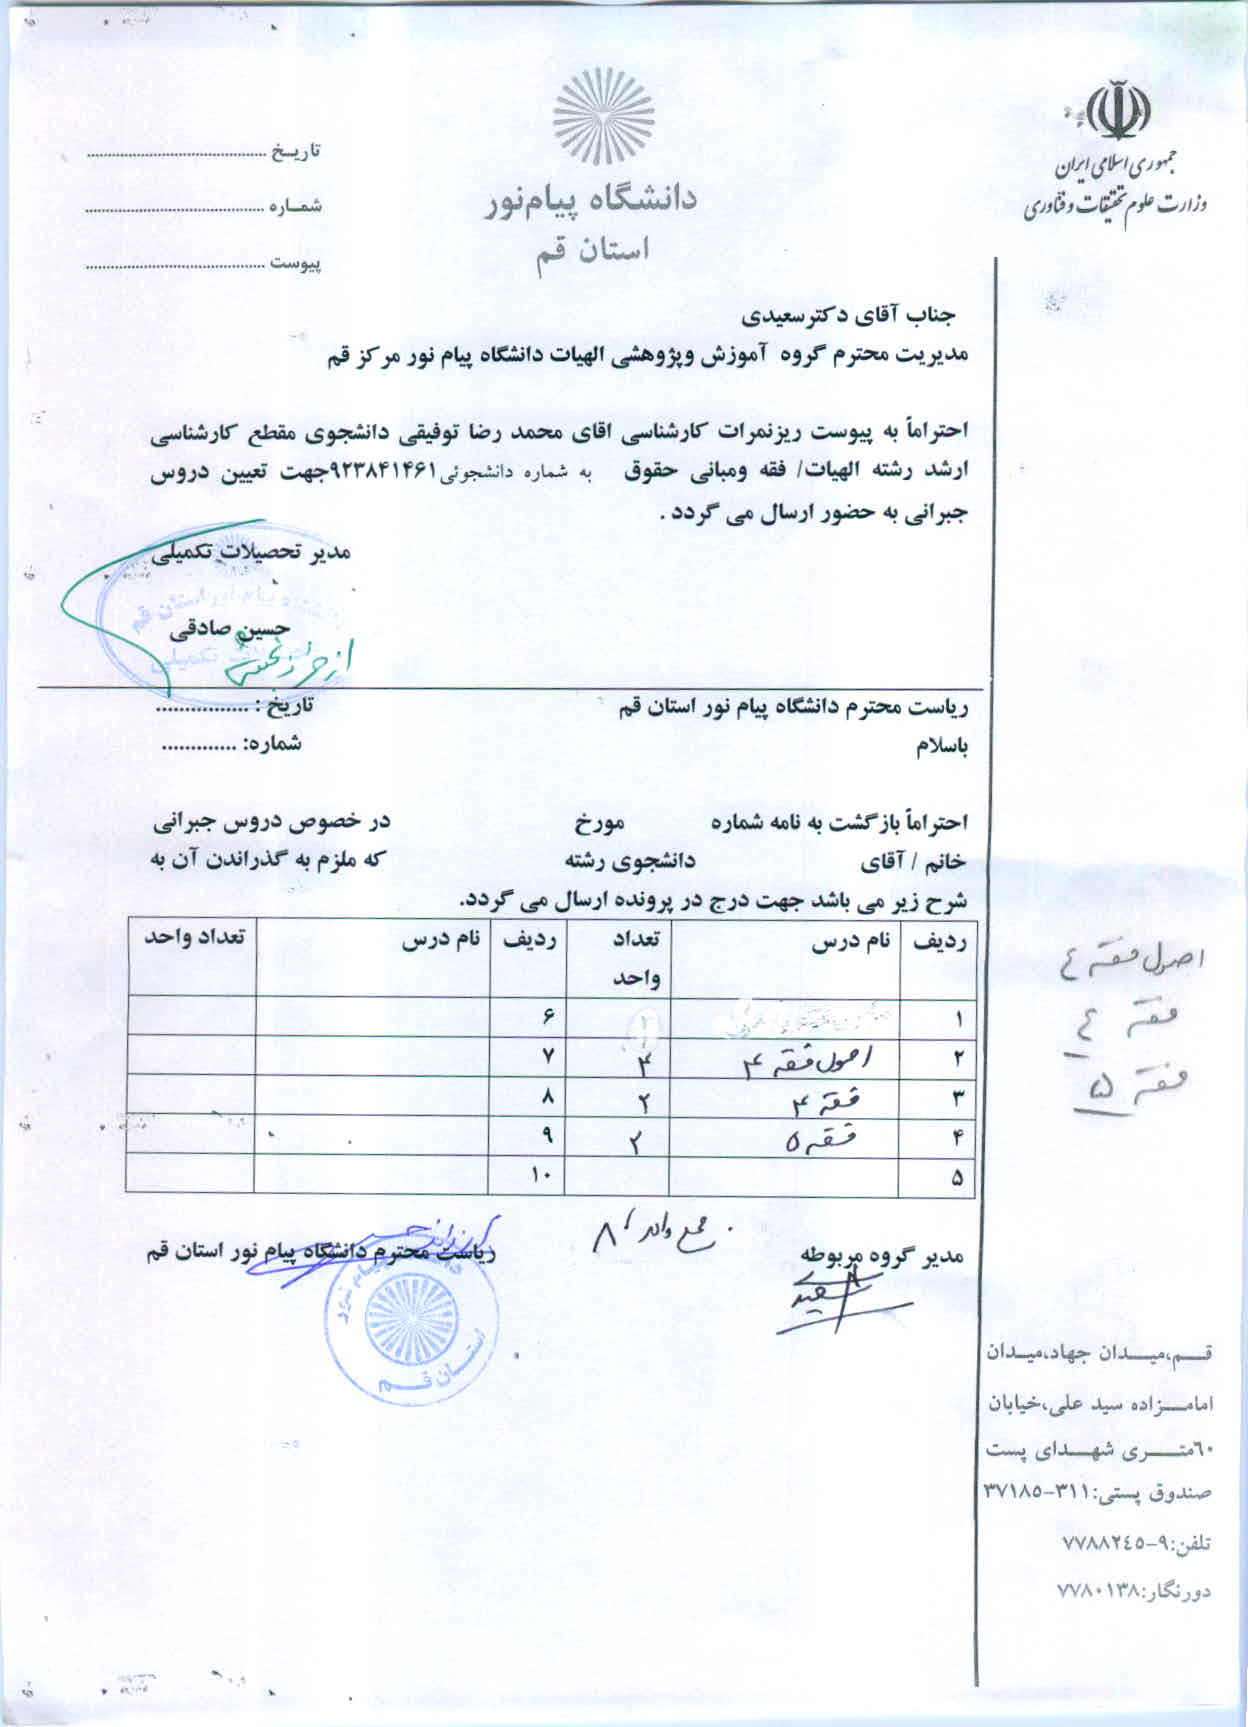 جمهوری اسلامی ایران
وزارت علوم تحقیقات و فناوری
دانشگاه پیام‌نور
استان قم
تاریـخ ..........................................
شمـاره ..........................................
پیوست ..........................................
جناب آقای دکترسعیدی
مدیریت محترم گروه آموزش وپژوهشی الهیات دانشگاه پیام نور مرکز قم
احتراماً به پیوست ریزنمرات کارشناسی اقای محمد رضا توفیقی دانشجوی مقطع کارشناسی
ارشد رشته الهیات/ فقه ومبانی حقوق به شماره دانشجوئی ۹۲۳۸۴۱۴۶۱جهت تعیین دروس
جبرانی به حضور ارسال می گردد .
مدیر تحصیلات تکمیلی
حسین صادقی
ریاست محترم دانشگاه پیام نور استان قم
تاریخ : ................
باسلام
شماره: .............
احتراماً بازگشت به نامه شماره مورخ در خصوص دروس جبرانی
خانم / آقای دانشجوی رشته که ملزم به گذراندن آن به
شرح زیر می باشد جهت درج در پرونده ارسال می گردد.
ردیف نام درس تعداد واحد ردیف نام درس تعداد واحد
۱ ۶
۲ اصول فقه ۴ ۴ ۷
۳ فقه ۴ ۲ ۸
۴ فقه ۵ ۲ ۹
۵ ۱۰
اصول فقه ٤
فقه ٤
فقه ۵
جمع واحد ۸
مدیر گروه مربوطه
ریاست محترم دانشگاه پیام نور استان قم
استان قم
قـــم،میـــدان جهاد،میـدان
امامــزاده سید علی،خیابان
٦٠متـــری شهـــدای پست
صندوق پستی:۳۱۱-۳۷۱۸۵
تلفن:۹-۷۷۸۸۲٤۵
دورنگار:۷۷۸۰۱۳۸